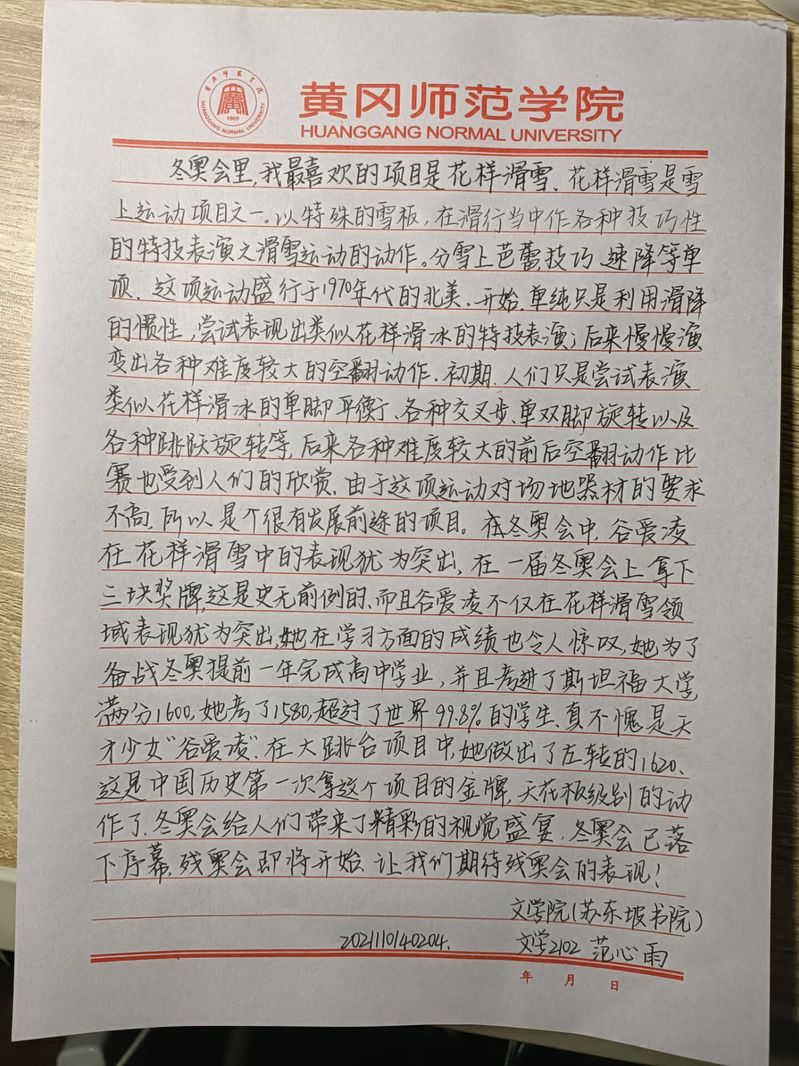 黄冈师范学院
HUANGGANG NORMAL UNIVERSITY
黄冈师范学院
HUANGGANG NORMAL UNIVERSITY
1905
冬奥会里,我最喜欢的项目是花样滑雪.花样滑雪是雪
上运动项目之一。以特殊的雪板,在滑行当中作各种技巧性
的特技表演之滑雪运动的动作。分雪上芭蕾,技巧,速降等单
项.这项运动盛行于1970年代的北美.开始,单纯只是利用滑降
的惯性,尝试表现出类似花样滑冰的特技表演;后来慢慢演
变出各种难度较大的空翻动作.初期.人们只是尝试表演
类似花样滑冰的单脚平衡、各种交叉步、单双脚旋转以及
各种跳跃旋转等.后来各种难度较大的前后空翻动作比
赛也受到人们的欣赏.由于这项运动对场地器材的要求
不高,所以是个很有发展前途的项目。在冬奥会中,谷爱凌
在花样滑雪中的表现犹为突出,在一届冬奥会上拿下
三块奖牌,这是史无前例的.而且谷爱凌不仅在花样滑雪领
域表现犹为突出,她在学习方面的成绩也令人惊叹,她为了
备战冬奥提前一年完成高中学业,并且考进了斯坦福大学,
满分1600,她考了1580,超过了世界99.8%的学生.真不愧是天
才少女"谷爱凌".在大跳台项目中,她做出了左转的1620、
这是中国历史第一次拿这个项目的金牌,天花板级别的动
作了.冬奥会给人们带来了精彩的视觉盛宴,冬奥会已落
下序幕,残奥会即将开始 让我们期待残奥会的表现!
文学院(苏东坡书院)
202110140204. 文学2102 范心雨
年 月 日